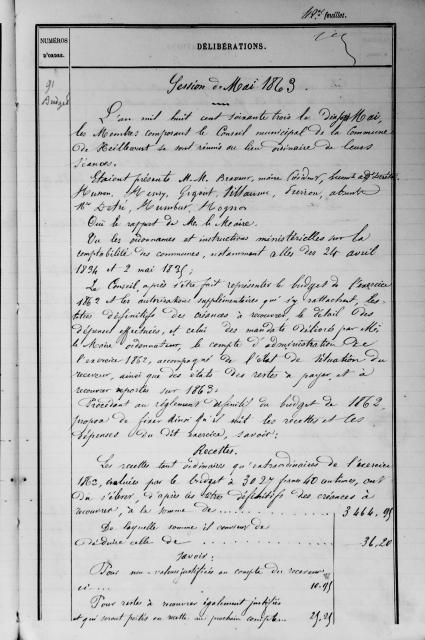 feuillet.
NUMÉROS D'ORDRE.
DÉLIBÉRATIONS.
91
Budget
Session de Mai 1863.
L'an mil huit cent soixante trois le dix Mai,
les Membres composant le Conseil municipal de la Commune
de Heillecourt se sont réunis au lieu ordinaire de leurs
séances.
Etaient présents M.M. maire
Husson, Henry, Villaume, absents
Mrs Humbert,
Oui le rapport de Mr le Maire.
Vu les ordonnances et instructions ministérielles sur la
comptabilité des communes, notamment celles des 24 avril
1834 et 2 mai 1835;
Le Conseil, après s'être fait représenter le budget de l'exercice
1862 et les autorisations supplémentaires qui s'y rattachent, les
titres définitifs des créances à recouvrer, le détail des
dépenses effectuées, et celui des mandats délivrés par Mr
le Maire ordonnateur, le compte d'administration de
l'exercice 1862, accompagné de l'état de situation du
receveur, ainsi que des états des restes à payer, et à
recouvrer reportés sur 1863;
Procédant au règlement définitif du budget de 1862,
propose de fixer ainsi qu'il suit les recettes et les
dépenses du dit exercice, savoir;
Recettes.
Les recettes tant ordinaires qu'extraordinaires de l'exercice
1862, évaluées par le budget à 3027 francs 40 centimes, ont
dû s'élever, d'après les titres définitifs des créances à
recouvrer, à la somme de .......... 3464.95
De laquelle somme il convient de
déduire celle de .......... 36.20
savoir:
Pour non-valeurs justifiées au compte du receveur,
ci .... 10.95
Pour restes à recouvrer également justifiés
et qui seront portés en recette au prochain compte.. 25.25